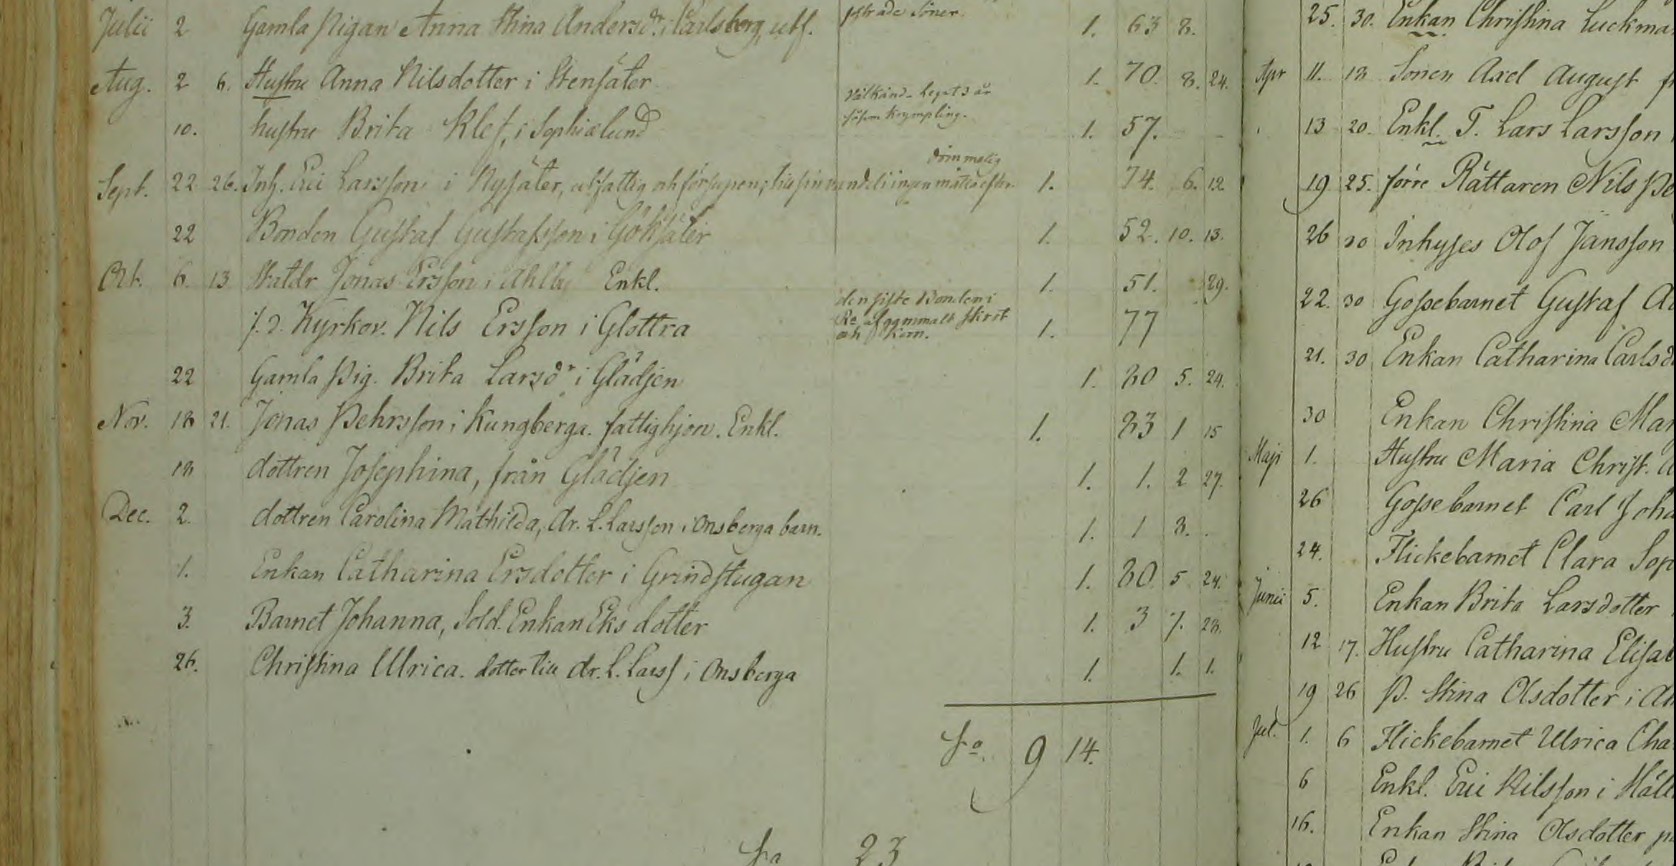 Julii 2 Gamla Pigan Anna Stina Andersdr. i Carlsberg, utf. söner. 1. 63 8.
Aug. 2 6. Hustru Anna Nilsdotter i Stensäter 1. 70. 8. 24.
Välkänd. Legat 3 år
såsom Krympling.
10. hustru Brita Klef, i Sophiælund 1. 57.
Sept. 22 26. Inh. Eric Larsson i Nysäter, utfattig och försupen; 1. 74. 6. 12.
22 Bonden Gustaf Gustafsson i Göksäter 1. 52. 10. 13.
Oct. 6. 13 Statdr Jonas Ersson i Ahlby Enkl. 1. 51. 29.
den siste Bonden i
af gammalt skrot
och korn.
f. d. Kyrkov. Nils Ersson i Glottra 1. 77
22 Gamla Pig. Brita Larsdr i Glädjen 1. 80 5. 24.
Nov. 18 21. Jonas Pehrsson i Kungberga. fattighjon. Enkl. 1. 83 1 15
18 dottren Josephina, från Glädjen 1. 1. 2 27.
Dec. 2. dottren Carolina Mathilda, dr. L. Larsson i Onsberga barn. 1. 1 8.
1. Enkan Catharina Ersdotter i Grindstugan 1. 80. 5. 24.
3. Barnet Johanna, Sold. Enkan Eks dotter 1. 3 7. 28.
26. Christina Ulrica. dotter till dr. L. Larss. i Onsberga 1. 1. 1.
Sa. 9 14.
Sa 23
25. 30. Enkan Christina Luckma
Apr 11. 18 Sonen Axel August
13 20. Enkl. T. Lars Larsson
19 25. förre Rättaren Nils Pe
26 30 Inhyses Olof Jansson
22. 30 Gossebarnet Gustaf A
21. 30 Enkan Catharina Carlsd
30 Enkan Christina Mar
Maji 1. Hustru Maria Christ.
26 Gossebarnet Carl Joha
24. Flickebarnet Clara Sop
Junii 5. Enkan Brita Larsdotter
12 17. Hustru Catharina Elisa
19 26 P. Stina Olsdotter i
Jul. 1. 6 Flickebarnet Ulrica Cha
6 Enkl. Eric Nilsson i Häll
16. Enkan Stina Olsdotter